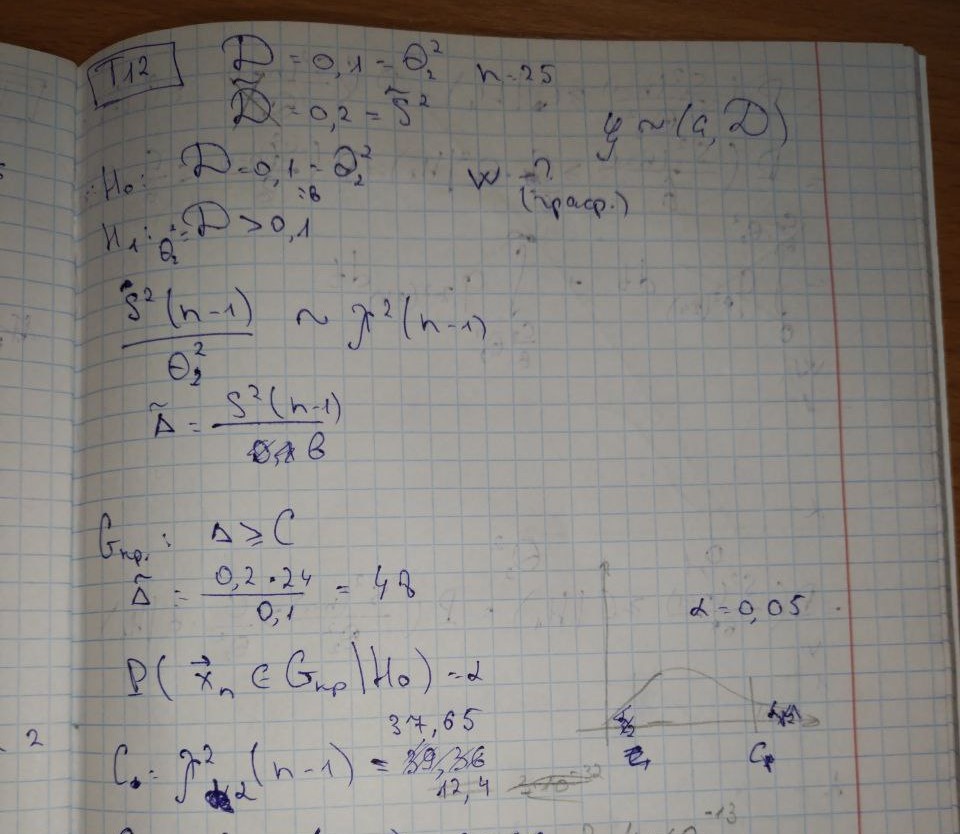 T12
D = 0,1 = θ₂² n = 25
D̃ = 0,2 = S̃²
y ~ (a, D)
H₀: D = 0,1 = θ₂² W - ?
= B (правр.)
H₁: θ₂² = D > 0,1
S²(n-1) / θ₂² ~ χ²(n-1)
Δ̃ = S²(n-1) / B
Gкр.: Δ ≥ C
Δ̃ = 0,2 · 24 / 0,1 = 48
α = 0,05
P( x⃗n ∈ Gкр | H₀ ) = α
37,65
C = χ²α (n-1) = 39,36
12,4